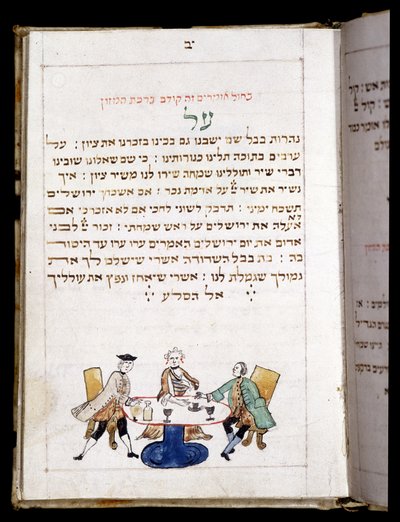 יב
בחול אומרים זה קודם ברכת המזון
על
נהרות בבל שם ישבנו גם בכינו בזכרנו את ציון : על
ערבים בתוכה תלינו כנורותינו : כי שם שאלונו שובינו
דברי שיר ותוללינו שמחה שירו לנו משיר ציון : איך
נשיר את שיר על אדמת נכר : אם אשכחך ירושלים
תשכח ימיני : תדבק לשוני לחכי אם לא אזכרכי אם
לא
אעלה את ירושלים על ראש שמחתי : זכור לבני
אדום את יום ירושלים האמרים ערו ערו עד היסוד
בה : בת בבל השדודה אשרי שישלם לך את
גמולך שגמלת לנו : אשרי שיאחז ונפץ את עולליך
אל הסלע